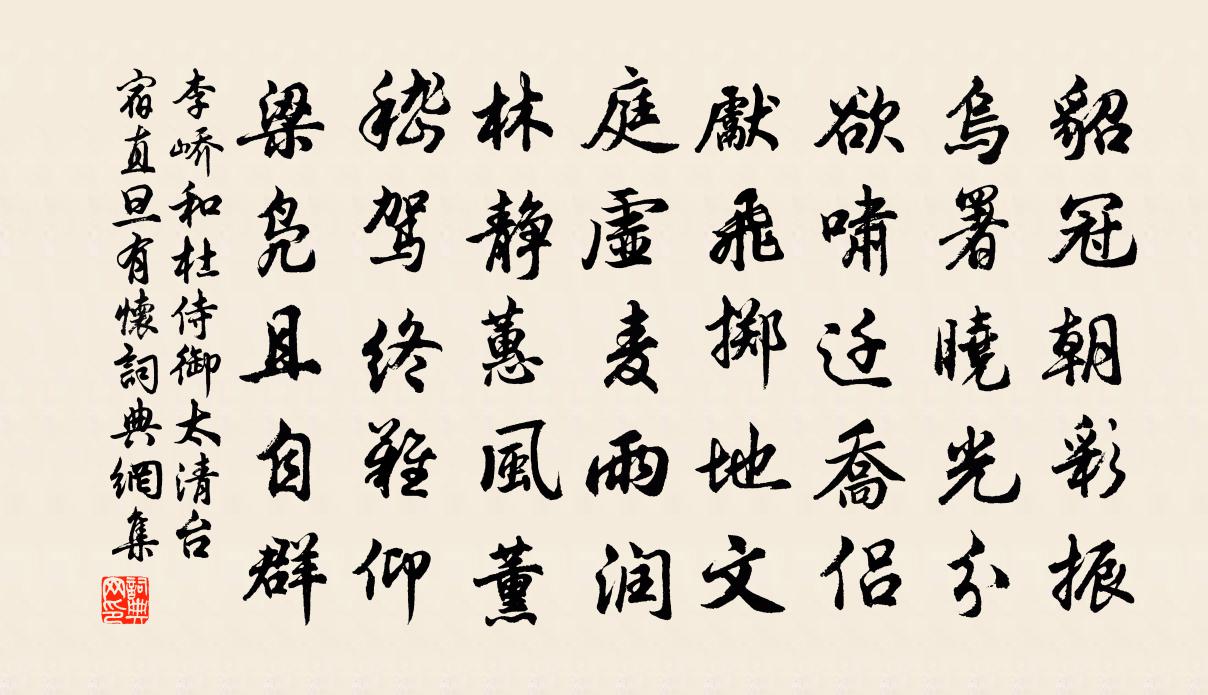 貂冠朝彩振
烏署曉光分
欲嘯迁喬侶
獻飛掷地文
庭虛麦雨润
林靜蕙風薰
嵇驾终難仰
梁凫且自群
李峤和杜侍御太清台
宿直旦有懷詞典網集
詞典网印